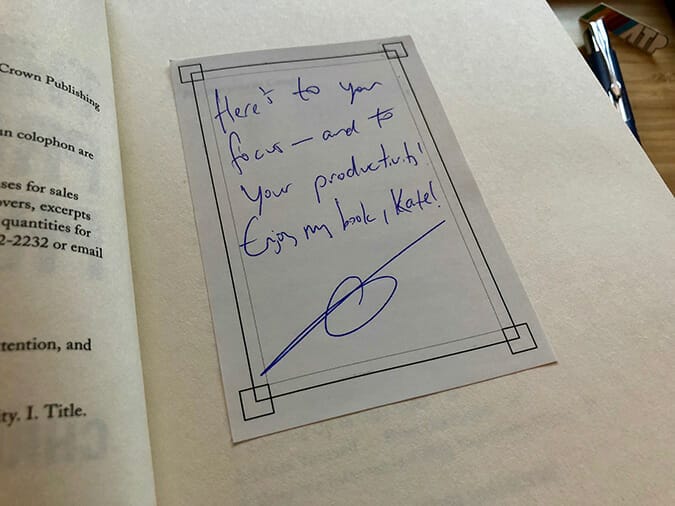 Crown Publishing
colophon are
ses for sales
overs, excerpts
quantities for
2-2232 or email
tention, and
ity. I. Title.
Here's to your
focus — and to
your productivity!
Enjoy my book, Kate!
ATP